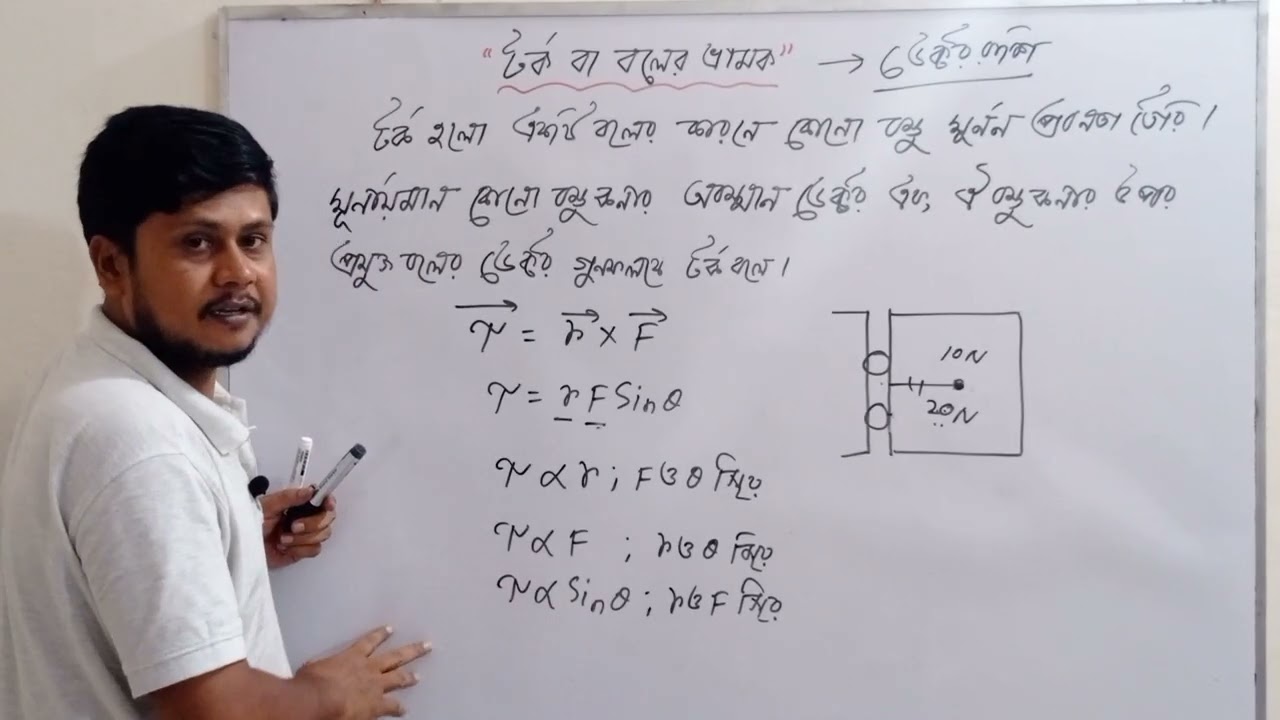 "টর্ক বা বলের ভ্রামক" → ভেক্টর রাশি
টর্ক হলো একটি বলের কারনে কোনো বস্তু ঘূর্নন প্রবনতা তৈরি।
ঘূর্নায়মান কোনো বস্তু কনার অবস্থান ভেক্টর এবং ঐ বস্তু কনার উপর
প্রযুক্ত বলের ভেক্টর গুনফলকে টর্ক বলে।
τ⃗ = r⃗ × F⃗
τ = r F Sinθ
10N
20N
τ ∝ r ; F ও θ স্থির
τ ∝ F ; r ও θ স্থির
τ ∝ Sinθ ; r ও F স্থির